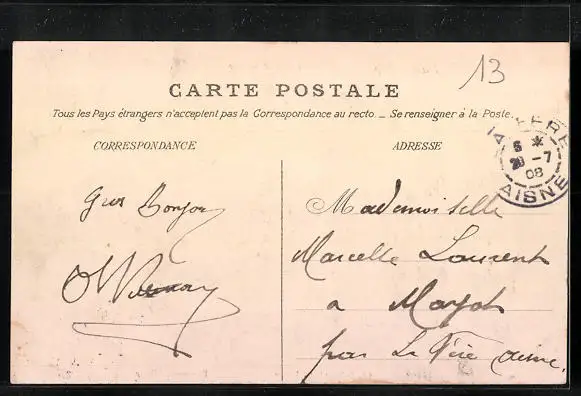 13
CARTE POSTALE
Tous les Pays étrangers n'acceptent pas la Correspondance au recto. _ Se renseigner à la Poste.
CORRESPONDANCE
ADRESSE
LA FERE
6 *
-7
08
AISNE
Bonjour
Mademoiselle
Marcelle Laurent
a Mayot
par La Fère Aisne.